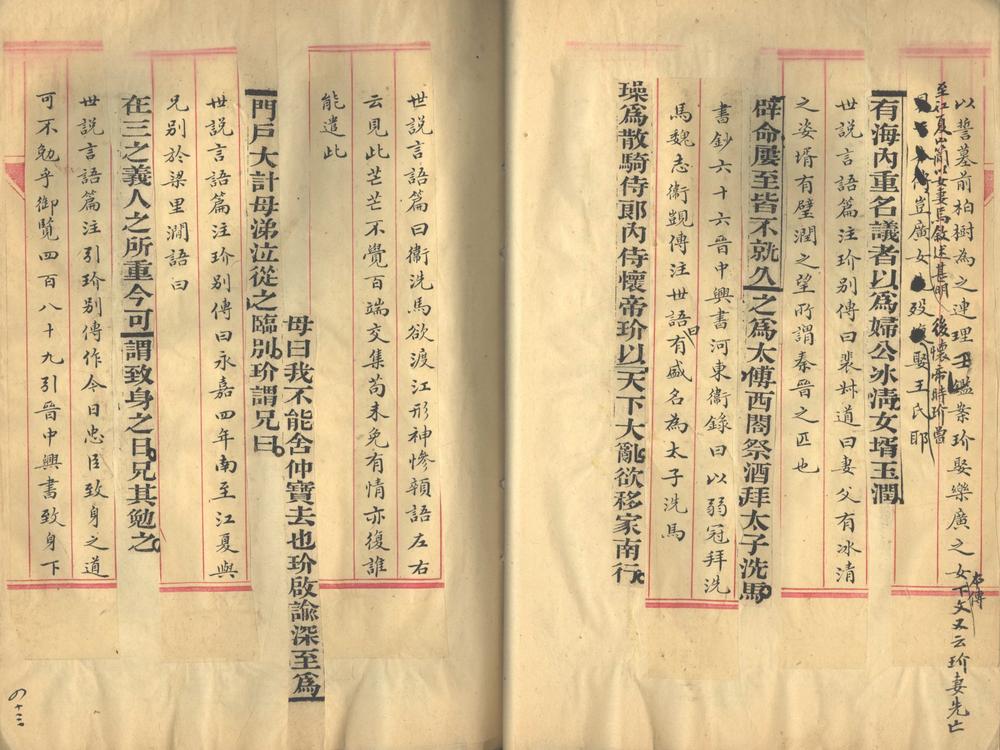 以誓墓前柏樹為之連理王鑑案玠娶樂廣之女下文又云玠妻先亡
本傳
至江夏山簡以女妻焉敘述甚明後懷帝時玠當
豈廣女歿娶王氏耶
有海內重名議者以爲婦公冰淸女壻玉潤
世說言語篇注玠別傳曰裴叔道曰妻父有冰清
之姿壻有璧潤之望所謂秦晉之匹也
辟命屢至皆不就久之爲太傅西閤祭酒拜太子洗馬
書鈔六十六晉中興書河東衞錄曰以弱冠拜洗
馬魏志衞覬傳注世語曰有盛名為太子洗馬
璪爲散騎侍郞內侍懷帝玠以天下大亂欲移家南行
世說言語篇曰衞洗馬欲渡江形神慘顇語左右
云見此芒芒不覺百端交集苟未免有情亦復誰
能遣此
母曰我不能舍仲寶去也玠啟諭深至爲
門戶大計母涕泣從之臨別玠謂兄曰
世說言語篇注玠別傳曰永嘉四年南至江夏與
兄別於梁里澗語曰
在三之義人之所重今可謂致身之日兄其勉之
世說言語篇注引玠別傳作今日忠臣致身之道
可不勉乎御覽四百八十九引晉中興書致身下